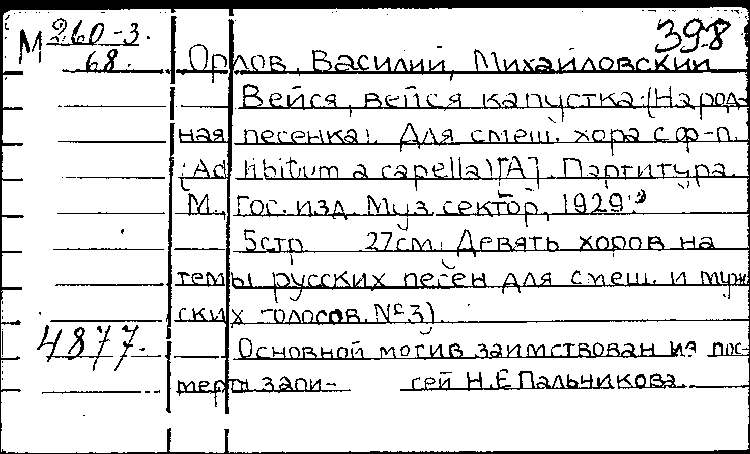 М 260-3.
68.
398
Орлов, Василий, Михайловский
Вейся, вейся капустка. (Народ-
ная песенка). Для смеш. хора с ф-п.
(Ad libitum a capella) [А]. Партитура.
М., Гос. изд. Муз. сектор, 1929.
5стр 27см. Девять хоров на
темы русских песен для смеш. и муж
ских голосов. №3).
4877.
Основной мотив заимствован из
запи- сей Н.Е Пальчикова.